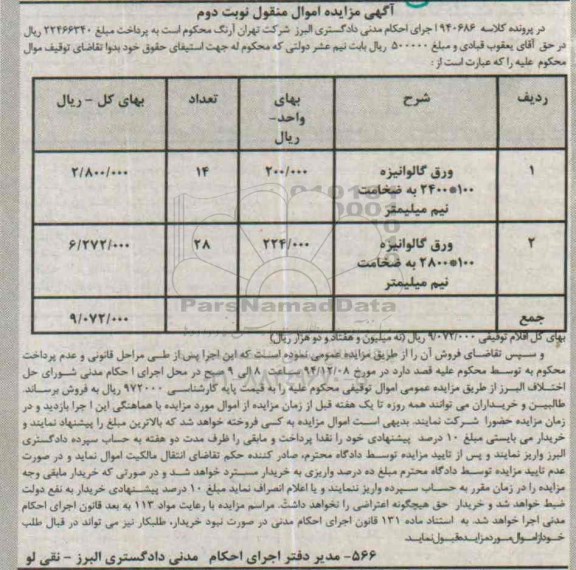 آگهی مزایده اموال منقول نوبت دوم
در پرونده کلاسه ۹۴۰۶۸۶ اجرای احکام مدنی دادگستری البرز شرکت تهران آرنگ محکوم است به پرداخت مبلغ ۲۲۴۶۶۳۴۰ ریال
در حق آقای یعقوب قبادی و مبلغ ۵۰۰۰۰۰ ریال بابت نیم عشر دولتی که محکوم له جهت استیفای حقوق خود بدوا تقاضای توقیف موال
محکوم علیه را که عبارت است از:
ردیف شرح بهای واحد- ریال تعداد بهای کل - ریال
۱ ورق گالوانیزه ۱۰۰*۲۴۰۰ به ضخامت نیم میلیمتر ۲۰۰/۰۰۰ ۱۴ ۲/۸۰۰/۰۰۰
۲ ورق گالوانیزه ۱۰۰*۲۸۰۰ به ضخامت نیم میلیمتر ۲۲۴/۰۰۰ ۲۸ ۶/۲۷۲/۰۰۰
جمع ۹/۰۷۲/۰۰۰
ParsNamadData
بهای کل اقلام توقیفی ۹/۰۷۲/۰۰۰ ریال (نه میلیون و هفتاد و دو هزار ریال)
و سپس تقاضای فروش آن را از طریق مزایده عمومی نموده است که این اجرا پس از طی مراحل قانونی و عدم پرداخت
محکوم به توسط محکوم علیه قصد دارد در مورخ ۹۴/۱۲/۰۸ ساعت ۸ الی ۹ صبح در محل اجرای احکام مدنی شورای حل
اختلاف البرز از طریق مزایده عمومی اموال توقیفی محکوم علیه را به قیمت پایه کارشناسی ۹۷۲۰۰۰ ریال به فروش برساند.
طالبین و خریداران می توانند همه روزه تا یک هفته قبل از زمان مزایده از اموال مورد مزایده با هماهنگی این اجرا بازدید و در
زمان مزایده حضورا شرکت نمایند. بدیهی است اموال مزایده به کسی فروخته خواهد شد که بالاترین مبلغ را پیشنهاد نمایند و
خریدار می بایستی مبلغ ۱۰ درصد پیشنهادی خود را نقدا پرداخت و مابقی را ظرف مدت دو هفته به حساب سپرده دادگستری
البرز واریز نمایند و پس از تایید مزایده توسط دادگاه محترم، صادر کننده حکم تقاضای انتقال مالکیت اموال نماید و در صورت
عدم تایید مزایده توسط دادگاه محترم مبلغ ده درصد واریزی به خریدار مسترد خواهد شد و در صورتی که خریدار مابقی وجه
مزایده را در زمان مقرر به حساب سپرده واریز ننمایند و یا اعلام انصراف نماید مبلغ ۱۰ درصد پیشنهادی خریدار به نفع دولت
ضبط خواهد شد و خریدار حق هیچگونه اعتراضی را نخواهد داشت. مراسم مزایده با رعایت مواد ۱۱۳ به بعد قانون اجرای احکام
مدنی اجرا خواهد شد. به استناد ماده ۱۳۱ قانون اجرای احکام مدنی در صورت نبود خریدار، طلبکار نیز می تواند در قبال طلب
خود از اموال مورد مزایده قبول نماید.
۵۶۶- مدیر دفتر اجرای احکام مدنی دادگستری البرز - نقی لو